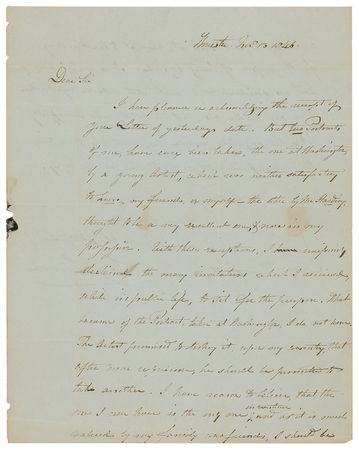 Novr 13 1846.
Dear Sir
I have pleasure in acknowledging the receipt of
your Letter of yesterdays date. But two Portraits
of me, have ever been taken, the one at Washington
by a young Artist, which was neither satisfactory
to my friends, or myself – the other by Mr Harding
thought to be a very excellent one & now in my
possession. With these exceptions, I have uniformly
declined the many invitations which I received,
while in public life, to sit for the purpose. What
became of the Portrait taken at Washington, I do not know.
The Artist promised to destroy it, upon my assurity, that
after more experience, he should be permitted to
take another. I have reason to believe, that the
one I now have is the only one in existence and as it is much
valued by my family and friends, I should be